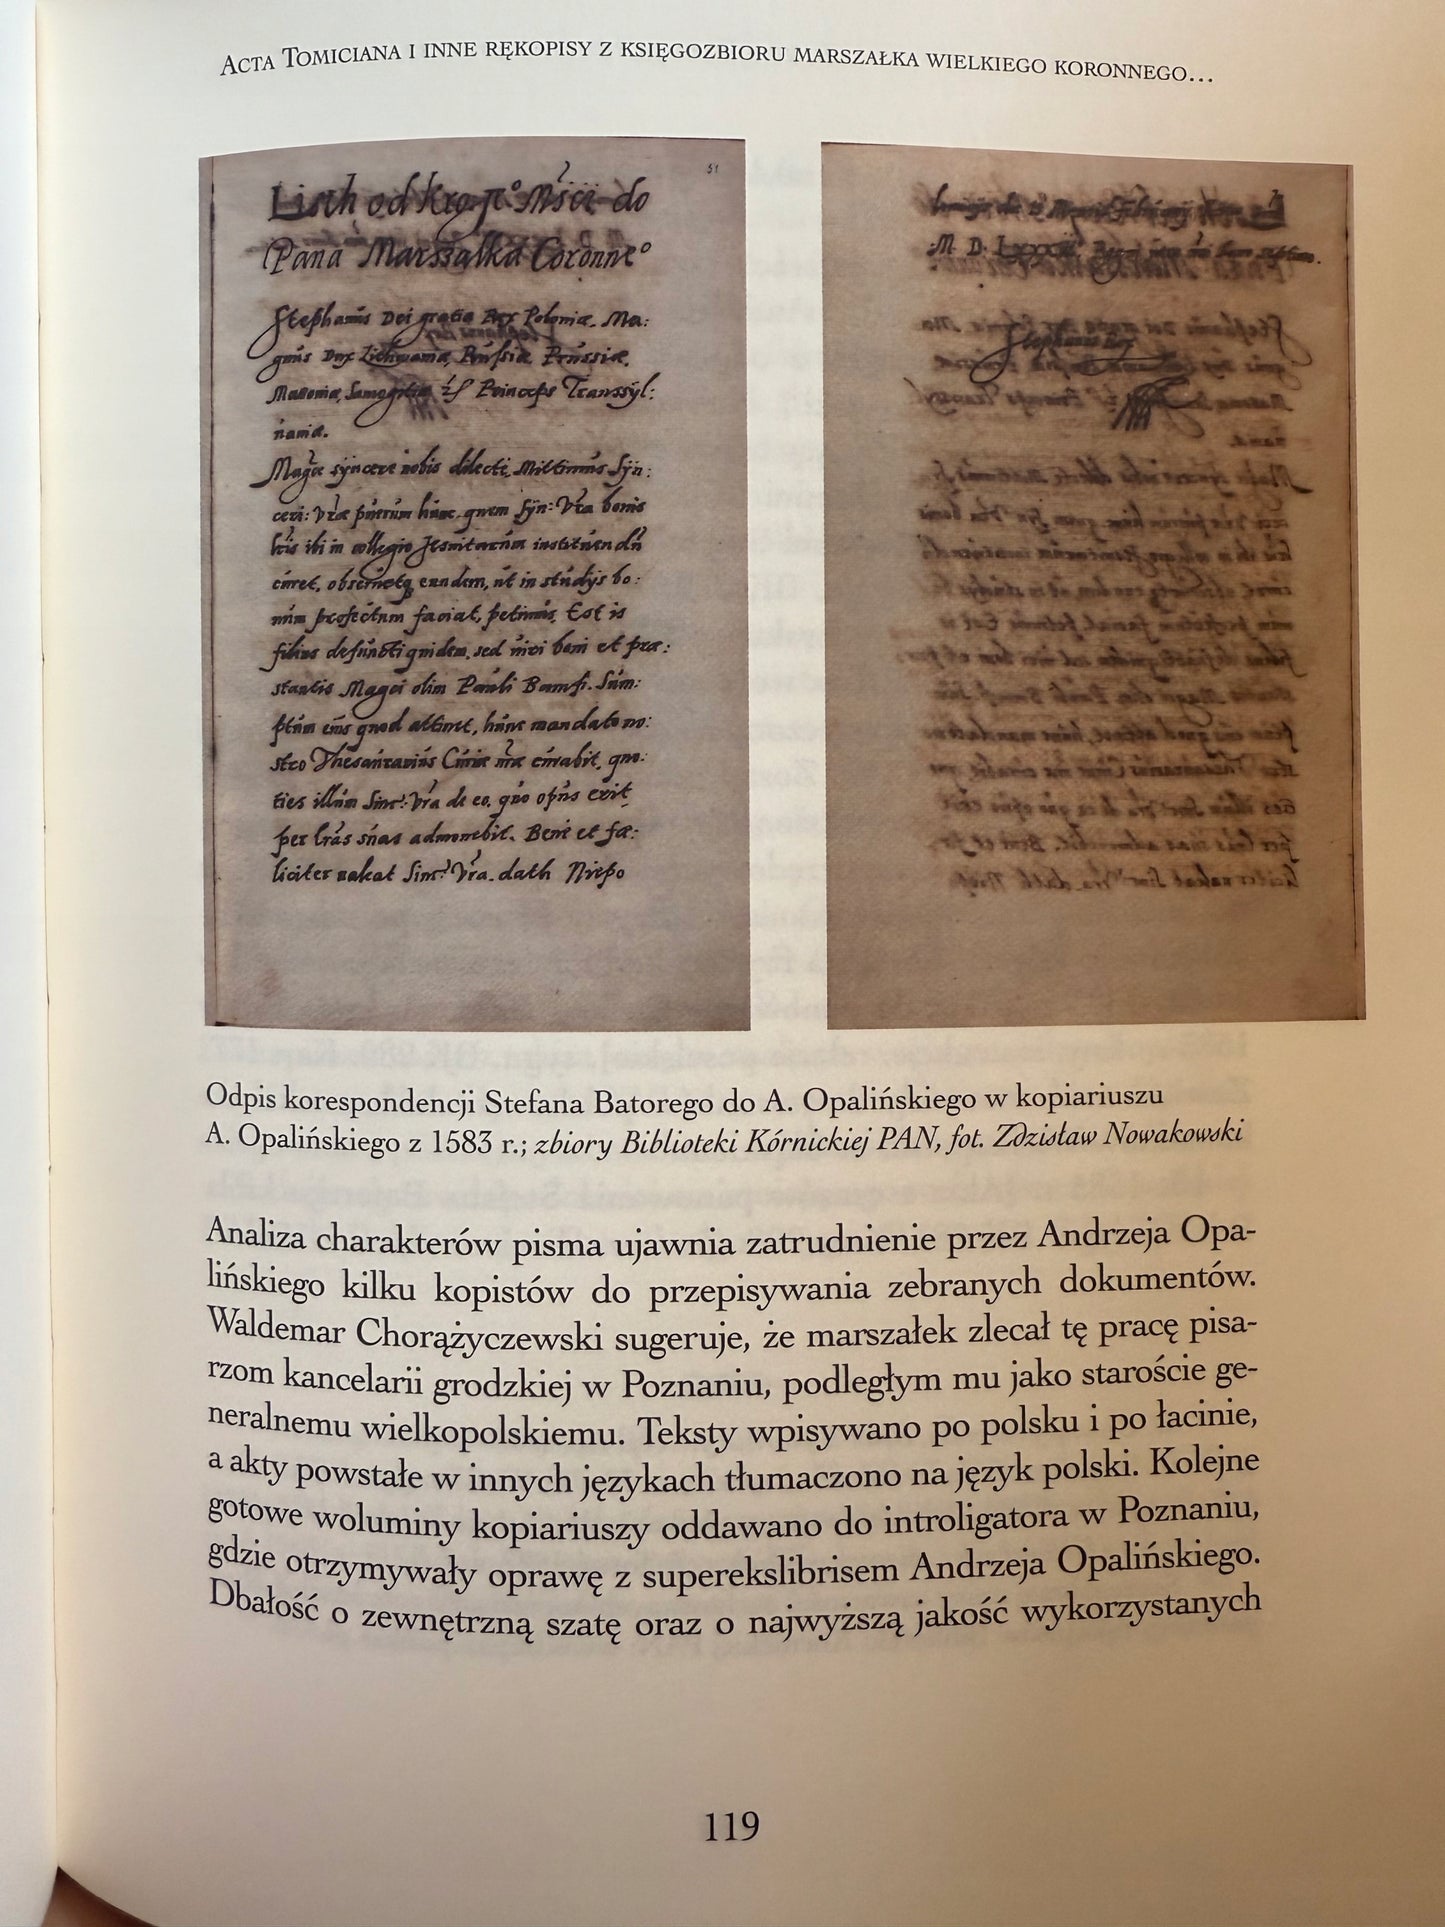 ACTA TOMICIANA I INNE RĘKOPISY Z KSIĘGOZBIORU MARSZAŁKA WIELKIEGO KORONNEGO...
51
Listh od Kro
Pana Marssalka Coronne°
Stephanus Dei gratia Rex Poloniæ, Ma:
gnus Dux Lithwaniæ, Russiæ Prussiæ,
Masoniæ, Samogitiæ Princeps Transsyl:
naniæ.
syncere nobis dilecti, Mittimus syn:
ceri: Vræ puerum hunc, quem syn: Vra bonis
ibi in collegio Jesuitarum instituendū
curet, eundem, ut in studijs bo:
num profectum faciat, petimus. Est is
filius defuncti quidem, sed viri boni et præ:
stantis Magci olim Pauli Bamfi. Sum:
ptum eius quod attinet, hunc mandato no:
stro Thesaurarius Curiæ nræ curabit, quo:
ties illum Sinc: Vra de eo, quo opus erit,
per lras suas admonebit. Bene et fæ:
liciter valeat Sinc: Vra. dath Niepo
M. D. LXXXIII.
Stephanus Rex
Odpis korespondencji Stefana Batorego do A. Opalińskiego w kopiariuszu
A. Opalińskiego z 1583 r.; zbiory Biblioteki Kórnickiej PAN, fot. Zdzisław Nowakowski
Analiza charakterów pisma ujawnia zatrudnienie przez Andrzeja Opa-
lińskiego kilku kopistów do przepisywania zebranych dokumentów.
Waldemar Chorążyczewski sugeruje, że marszałek zlecał tę pracę pisa-
rzom kancelarii grodzkiej w Poznaniu, podległym mu jako staroście ge-
neralnemu wielkopolskiemu. Teksty wpisywano po polsku i po łacinie,
a akty powstałe w innych językach tłumaczono na język polski. Kolejne
gotowe woluminy kopiariuszy oddawano do introligatora w Poznaniu,
gdzie otrzymywały oprawę z superekslibrisem Andrzeja Opalińskiego.
Dbałość o zewnętrzną szatę oraz o najwyższą jakość wykorzystanych
119